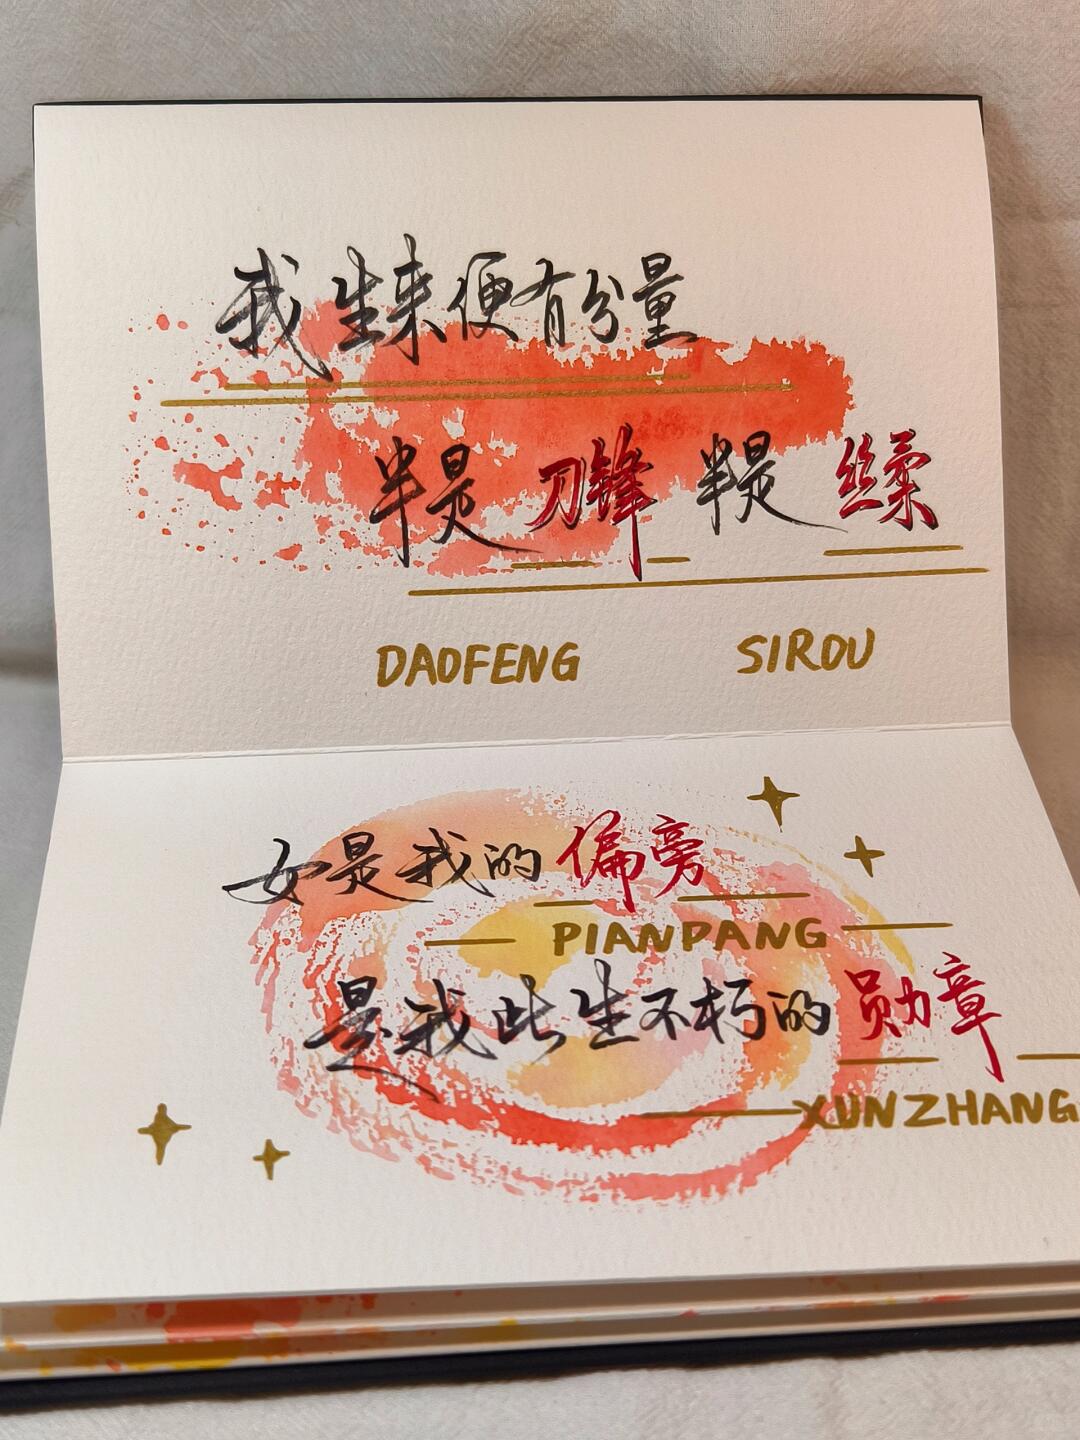 我生来便有分量
半是刀锋 半是丝柔
DAOFENG SIROU
女是我的偏旁
PIANPANG
是我此生不朽的勋章
XUNZHANG